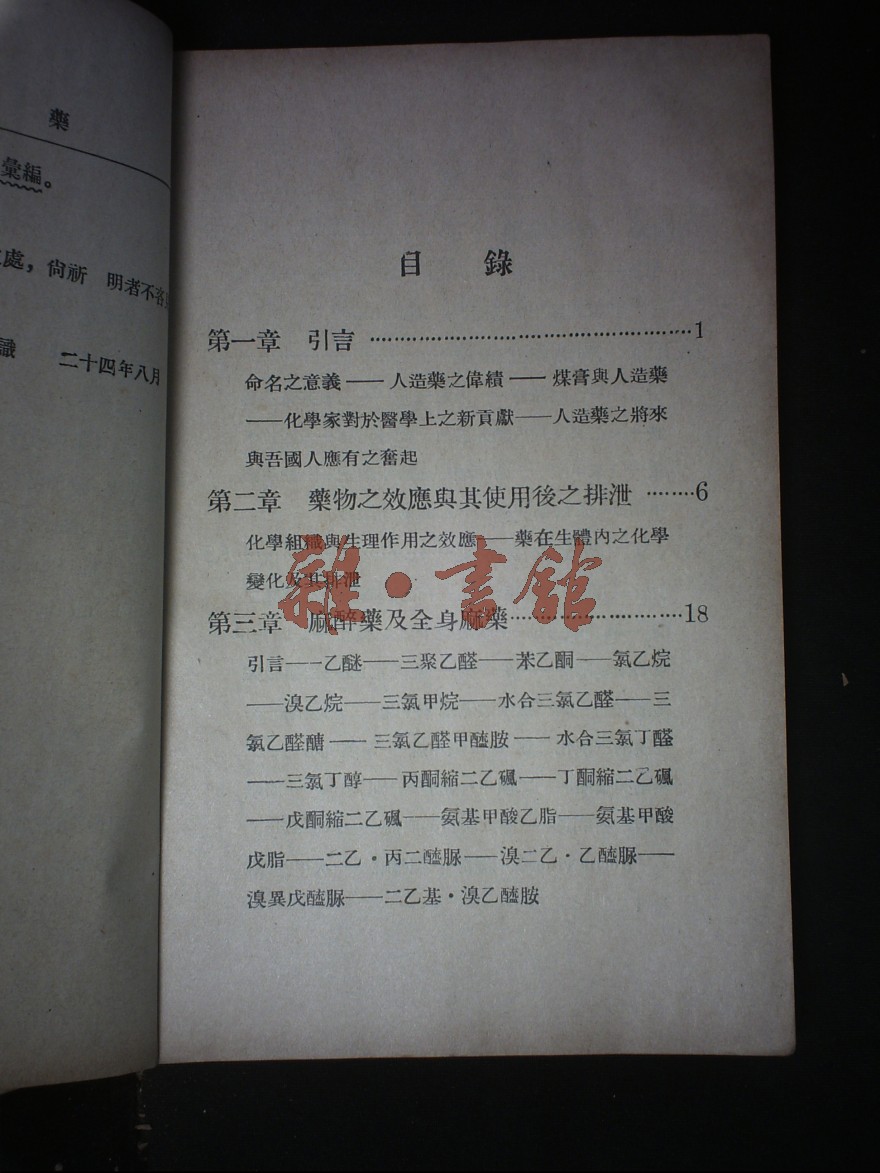 藥
彙編。
處，尙祈　明者不吝
識　二十四年八月
目　錄
第一章　引言 ················································1
命名之意義——人造藥之偉績——煤膏與人造藥
——化學家對於醫學上之新貢獻——人造藥之將來
與吾國人應有之奮起
第二章　藥物之效應與其使用後之排泄 ········6
化學組織與生理作用之效應——藥在生體內之化學
變化及其排泄
第三章　麻醉藥及全身麻藥························18
引言——乙醚——三聚乙醛——苯乙酮——氯乙烷
——溴乙烷——三氯甲烷——水合三氯乙醛——三
氯乙醛醣——三氯乙醛甲醯胺——水合三氯丁醛
——三氯丁醇——丙酮縮二乙碸——丁酮縮二乙碸
——戊酮縮二乙碸——氨基甲酸乙脂——氨基甲酸
戊脂——二乙·丙二醯脲——溴二乙·乙醯脲——
溴異戊醯脲——二乙基·溴乙醯胺
雜·書館